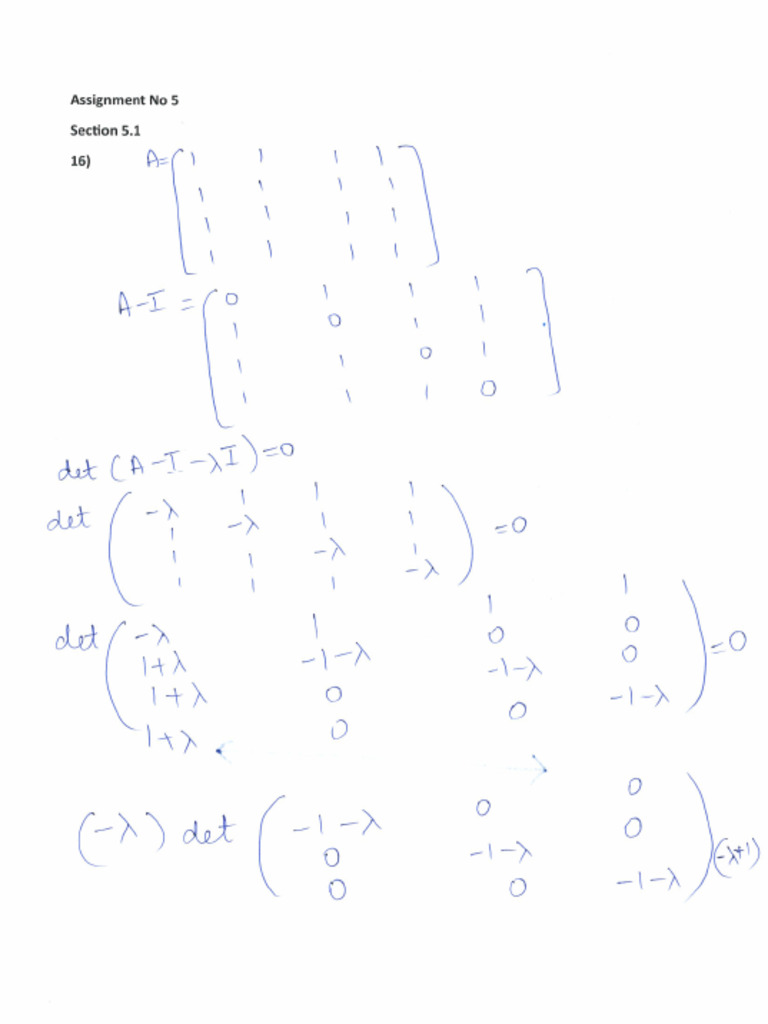 Assignment No 5
Section 5.1
16) A= [ 1 1 1 1
1 1 1 1
1 1 1 1
1 1 1 1 ]
A-I = [ 0 1 1 1
1 0 1 1
1 1 0 1
1 1 1 0 ]
det (A-I-λI)=0
det ( -λ 1 1 1
1 -λ 1 1
1 1 -λ 1
1 1 1 -λ ) =0
det ( -λ 1 1 1
1+λ -1-λ 0 0
1+λ 0 -1-λ 0
1+λ 0 0 -1-λ ) =0
(-λ) det ( -1-λ 0 0
0 -1-λ 0
0 0 -1-λ ) (-λ+1)